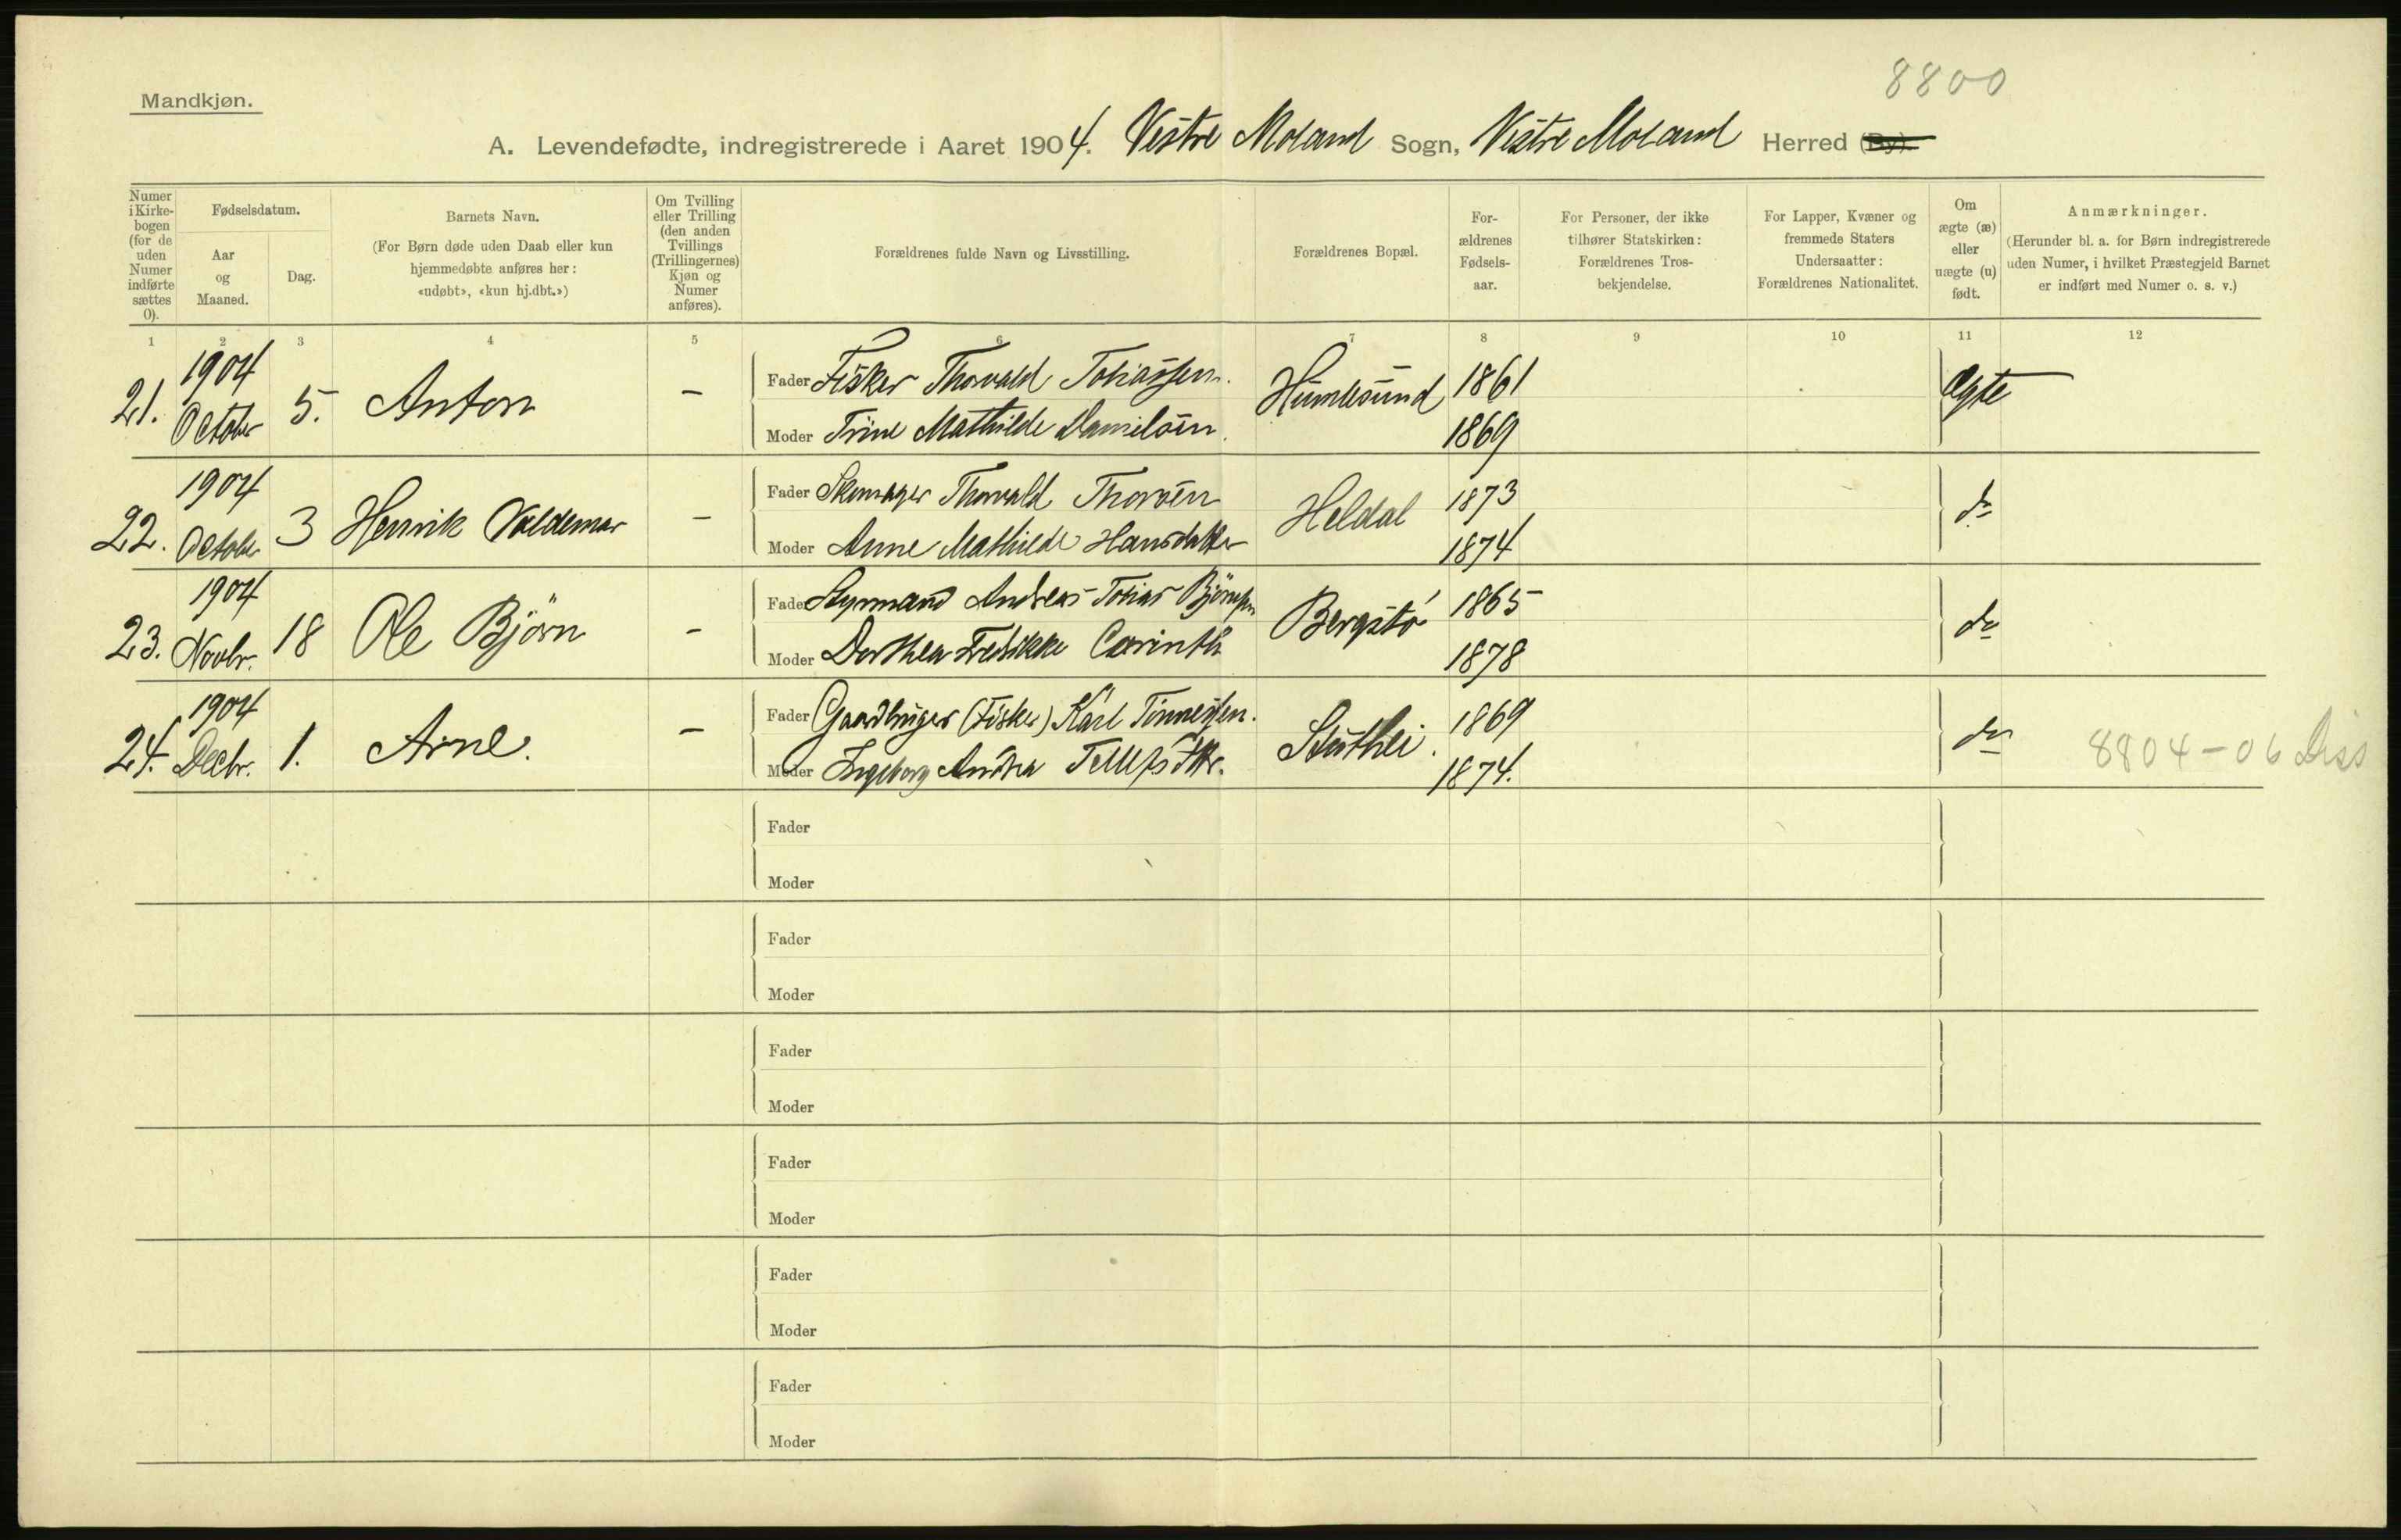 8800
Mandkjøn.
A. Levendefødte, indregistrerede i Aaret 1904. Vestre Moland Sogn, Vestre Moland Herred (By).
Numer i Kirke- bogen (for de uden Numer indførte sættes 0).
Fødselsdatum.
Aar og Maaned.
Dag.
Barnets Navn.
(For Børn døde uden Daab eller kun
hjemmedøbte anføres her:
«udøbt», «kun hj.dbt.»)
Om Tvilling
eller Trilling
(den anden
Tvillings
(Trillingernes)
Kjøn og
Numer
anføres).
Forældrenes fulde Navn og Livsstilling.
Forældrenes Bopæl.
For-
ældrenes
Fødsels-
aar.
For Personer, der ikke
tilhører Statskirken:
Forældrenes Tros-
bekjendelse.
For Lapper, Kvæner og
fremmede Staters
Undersaatter:
Forældrenes Nationalitet.
Om
ægte (æ)
eller
uægte (u)
født.
Anmærkninger.
(Herunder bl. a. for Børn indregistrerede
uden Numer, i hvilket Præstegjeld Barnet
er indført med Numer o. s. v.)
1 2 3 4 5 6 7 8 9 10 11 12
21. 1904 October 5. Anton - Fader Fisker Thorvald Tobiassen. Humlesund 1861 Ægte
Moder Trine Mathilde Danielsen. 1869
22. 1904 October 3 Henrik Valdemar - Fader Skomager Thorvald Thorsen Heldal 1873 do
Moder Anne Mathilde Hansdatter 1874
23. 1904 Novbr. 18 Ole Björn - Fader Styrmand Andreas Tobias Björnsen Bergstø 1865 do
Moder Dorthea Fredrikke Corinth 1878
24. 1904 Decbr. 1. Arne. - Fader Gaardbruger (Fisker) Karl Tønnessen. 1869 do
Moder Ingeborg Andrea 1874.
8804-06 Diss
Fader
Moder
Fader
Moder
Fader
Moder
Fader
Moder
Fader
Moder
Fader
Moder